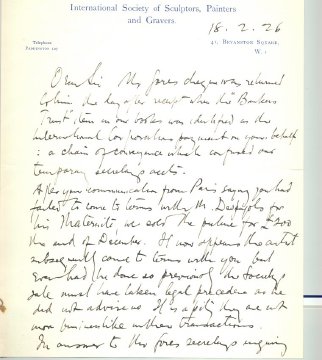 International Society of Sculptors, Painters
and Gravers.
18. 2. 26
Telephone
Paddington
41, Bryanston Square,
W. 1
Dear Sir Mrs fores cheque was returned
to him the day after receipt when the "Bankers
Trust" item in our books was identified as the
International Corporation payment on your behalf
: a chain of conveyance which confused our
temporary secretary's accts.
After your communication from Paris saying you had
failed to come to terms with Mr. Despiau for
his Maternité, we sold the for £200
the end of December. It now appears the artist
subsequently came to terms with you but
even had he done so previously the Society's
sale must have taken legal precedence as he
did not advise us. It is a pity they are not
more businesslike in these transactions.
In answer to Mrs fores secretary's enquiry